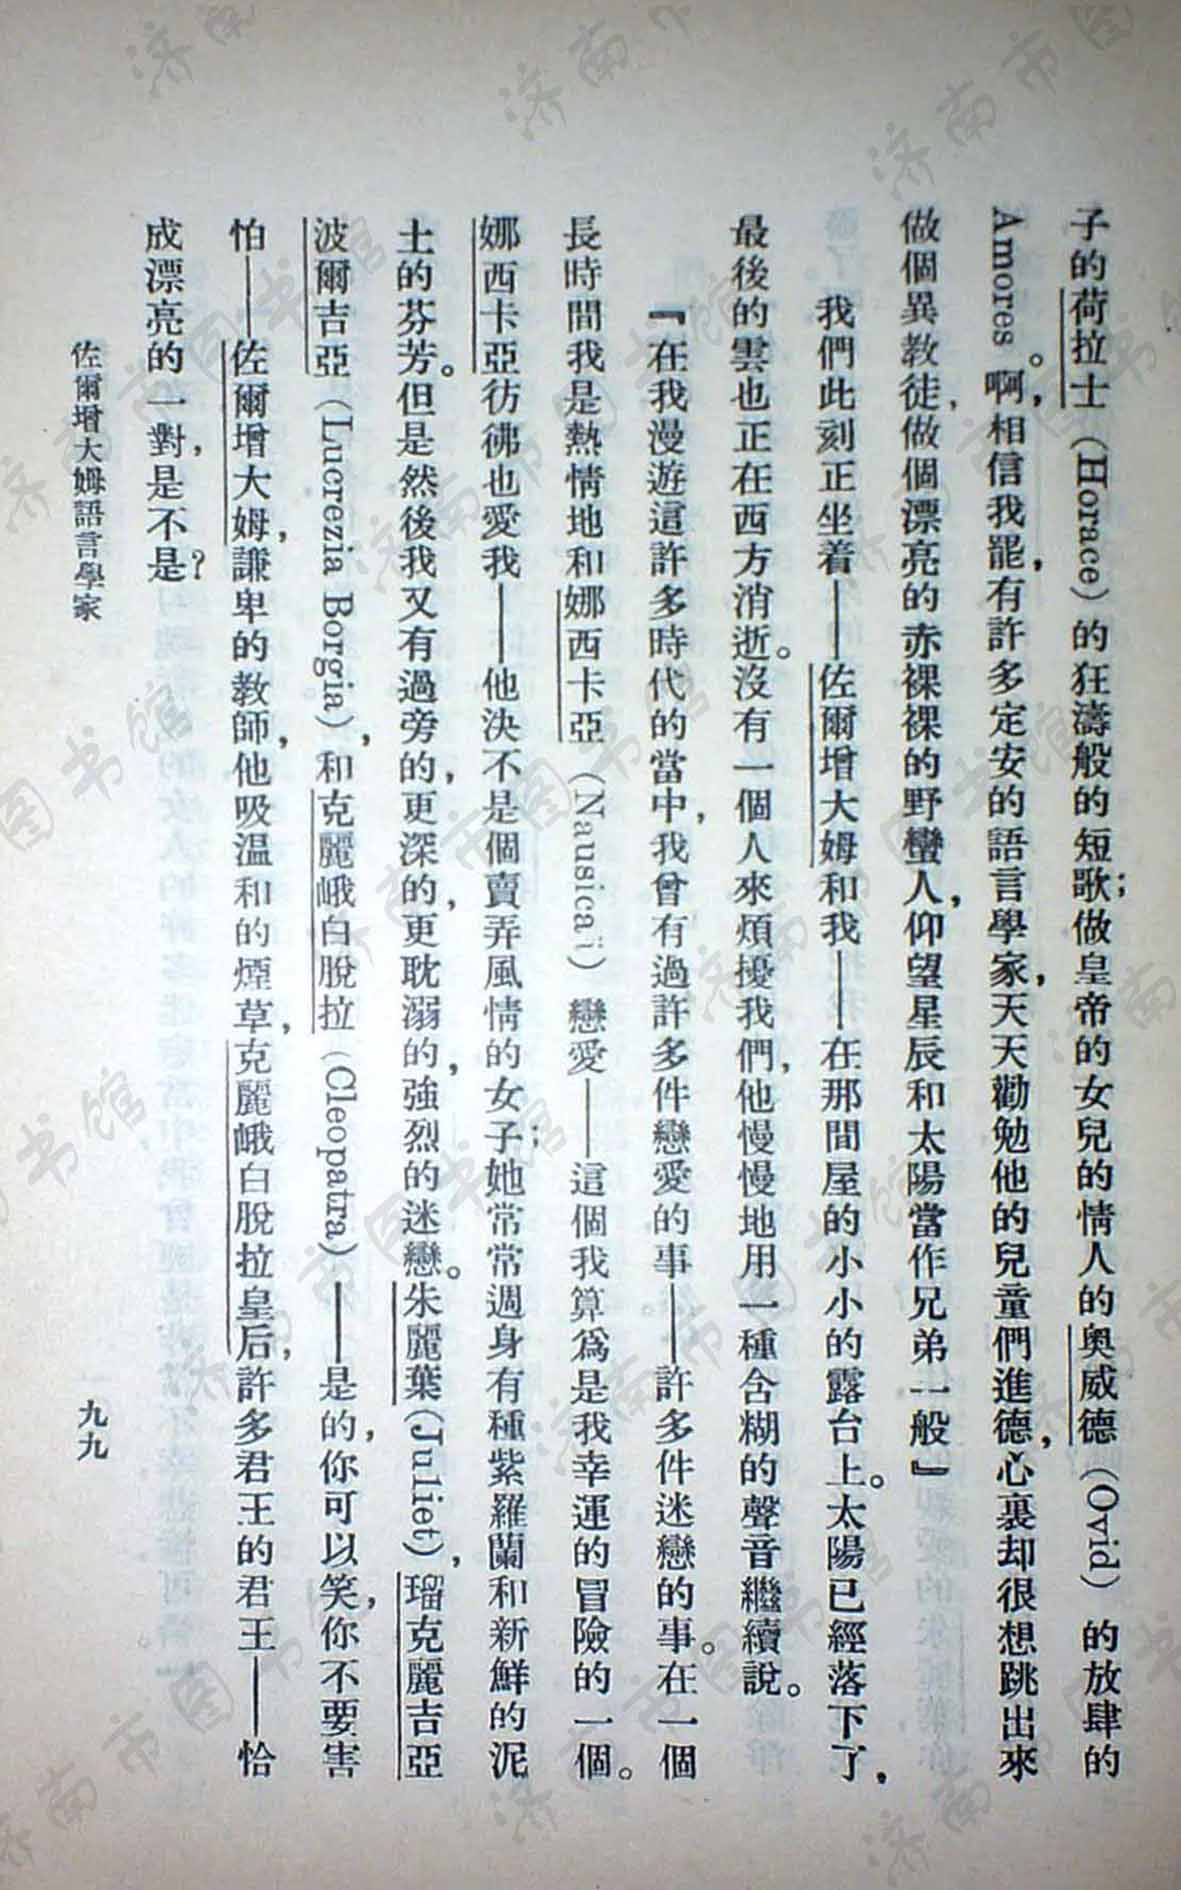 子的荷拉士（Horace）的狂濤般的短歌；做皇帝的女兒的情人的奧威德（Ovid）的放肆的
Amores。啊，相信我罷，有許多定安的語言學家，天天勸勉他的兒童們進德，心裏却很想跳出來
做個異教徒，做個漂亮的赤裸裸的野蠻人，仰望星辰和太陽當作兄弟一般』
我們此刻正坐着——佐爾增大姆和我——在那間屋的小小的露台上。太陽已經落下了，
最後的雲也正在西方消逝。沒有一個人來煩擾我們，他慢慢地用一種含糊的聲音繼續說。
『在我漫遊這許多時代的當中，我曾有過許多件戀愛的事——許多件迷戀的事。在一個
長時間我是熱情地和娜西卡亞（Nausicaï）戀愛——這個我算爲是我幸運的冒險的一個。
娜西卡亞彷彿也愛我——他決不是個賣弄風情的女子；她常常週身有種紫羅蘭和新鮮的泥
土的芬芳。但是然後我又有過旁的，更深的，更耽溺的，強烈的迷戀。朱麗葉（Juliet），瑠克麗吉亞
波爾吉亞（Lucrezia Borgia），和克麗峨白脫拉（Cleopatra）——是的，你可以笑，你不要害
怕——佐爾增大姆，謙卑的教師，他吸温和的煙草，克麗峨白脫拉皇后，許多君王的君王——恰
成漂亮的一對，是不是？
佐爾增大姆語言學家
九九
济南市图书馆